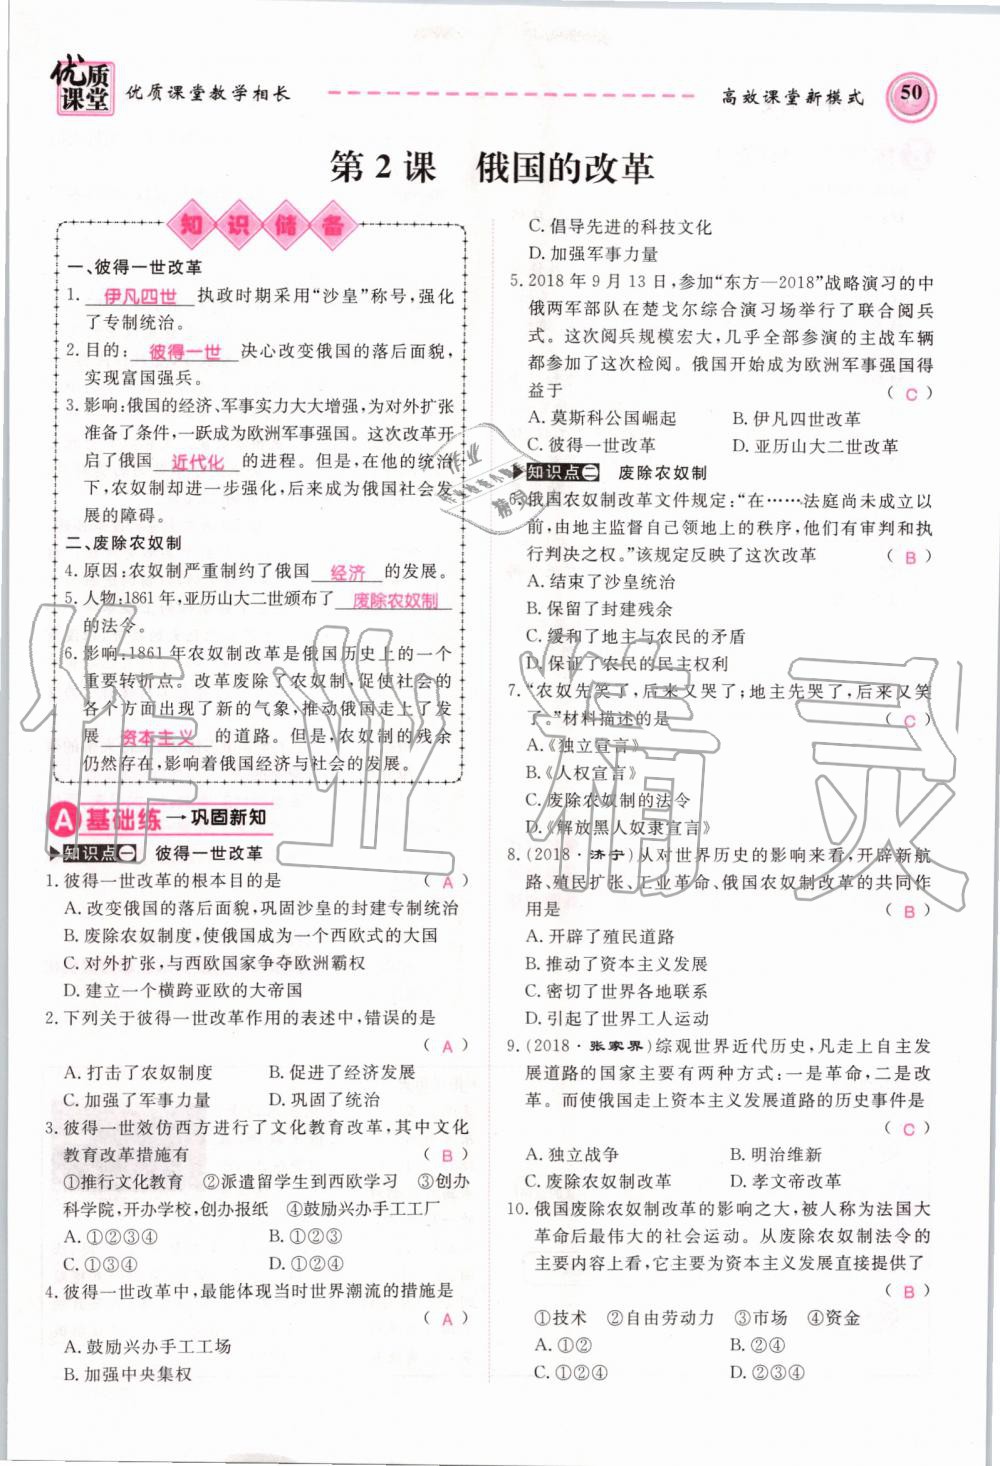 优质课堂
优质课堂教学相长
高效课堂新模式
50
第2课 俄国的改革
知识储备
一、彼得一世改革
1. 伊凡四世 执政时期采用“沙皇”称号,强化
了专制统治。
2. 目的: 彼得一世 决心改变俄国的落后面貌,
实现富国强兵。
3. 影响:俄国的经济、军事实力大大增强,为对外扩张
准备了条件,一跃成为欧洲军事强国。这次改革开
启了俄国 近代化 的进程。但是,在他的统治
下,农奴制却进一步强化,后来成为俄国社会发
展的障碍。
二、废除农奴制
4. 原因:农奴制严重制约了俄国 经济 的发展。
5. 人物:1861年,亚历山大二世颁布了 废除农奴制
的法令。
6. 影响:1861年农奴制改革是俄国历史上的一个
重要转折点。改革废除了农奴制,促使社会的
各个方面出现了新的气象,推动俄国走上了发
展 资本主义 的道路。但是,农奴制的残余
仍然存在,影响着俄国经济与社会的发展。
A 基础练→巩固新知
知识点一 彼得一世改革
1. 彼得一世改革的根本目的是 ( A )
A. 改变俄国的落后面貌,巩固沙皇的封建专制统治
B. 废除农奴制度,使俄国成为一个西欧式的大国
C. 对外扩张,与西欧国家争夺欧洲霸权
D. 建立一个横跨亚欧的大帝国
2. 下列关于彼得一世改革作用的表述中,错误的是
( A )
A. 打击了农奴制度 B. 促进了经济发展
C. 加强了军事力量 D. 巩固了统治
3. 彼得一世效仿西方进行了文化教育改革,其中文化
教育改革措施有 ( B )
①推行文化教育 ②派遣留学生到西欧学习 ③创办
科学院,开办学校,创办报纸 ④鼓励兴办手工工厂
A. ①②③④ B. ①②③
C. ①③④ D. ①②④
4. 彼得一世改革中,最能体现当时世界潮流的措施是
( A )
A. 鼓励兴办手工工场
B. 加强中央集权
C. 倡导先进的科技文化
D. 加强军事力量
5. 2018年9月13日,参加“东方—2018”战略演习的中
俄两军部队在楚戈尔综合演习场举行了联合阅兵
式。这次阅兵规模宏大,几乎全部参演的主战车辆
都参加了这次检阅。俄国开始成为欧洲军事强国得
益于 ( C )
A. 莫斯科公国崛起 B. 伊凡四世改革
C. 彼得一世改革 D. 亚历山大二世改革
知识点二 废除农奴制
6. 俄国农奴制改革文件规定:“在……法庭尚未成立以
前,由地主监督自己领地上的秩序,他们有审判和执
行判决之权。”该规定反映了这次改革 ( B )
A. 结束了沙皇统治
B. 保留了封建残余
C. 缓和了地主与农民的矛盾
D. 保证了农民的民主权利
7. “农奴先笑了,后来又哭了;地主先哭了,后来又笑
了。”材料描述的是 ( C )
A.《独立宣言》
B.《人权宣言》
C. 废除农奴制的法令
D.《解放黑人奴隶宣言》
8. (2018·济宁)从对世界历史的影响来看,开辟新航
路、殖民扩张、工业革命、俄国农奴制改革的共同作
用是 ( B )
A. 开辟了殖民道路
B. 推动了资本主义发展
C. 密切了世界各地联系
D. 引起了世界工人运动
9. (2018·张家界)综观世界近代历史,凡走上自主发
展道路的国家主要有两种方式:一是革命,二是改
革。而使俄国走上资本主义发展道路的历史事件是
( C )
A. 独立战争 B. 明治维新
C. 废除农奴制改革 D. 孝文帝改革
10. 俄国废除农奴制改革的影响之大,被人称为法国大
革命后最伟大的社会运动。从废除农奴制法令的
内容上看,它主要为资本主义发展直接提供了
( B )
①技术 ②自由劳动力 ③市场 ④资金
A. ①② B. ②④
C. ①②④ D. ②③④
作业精灵